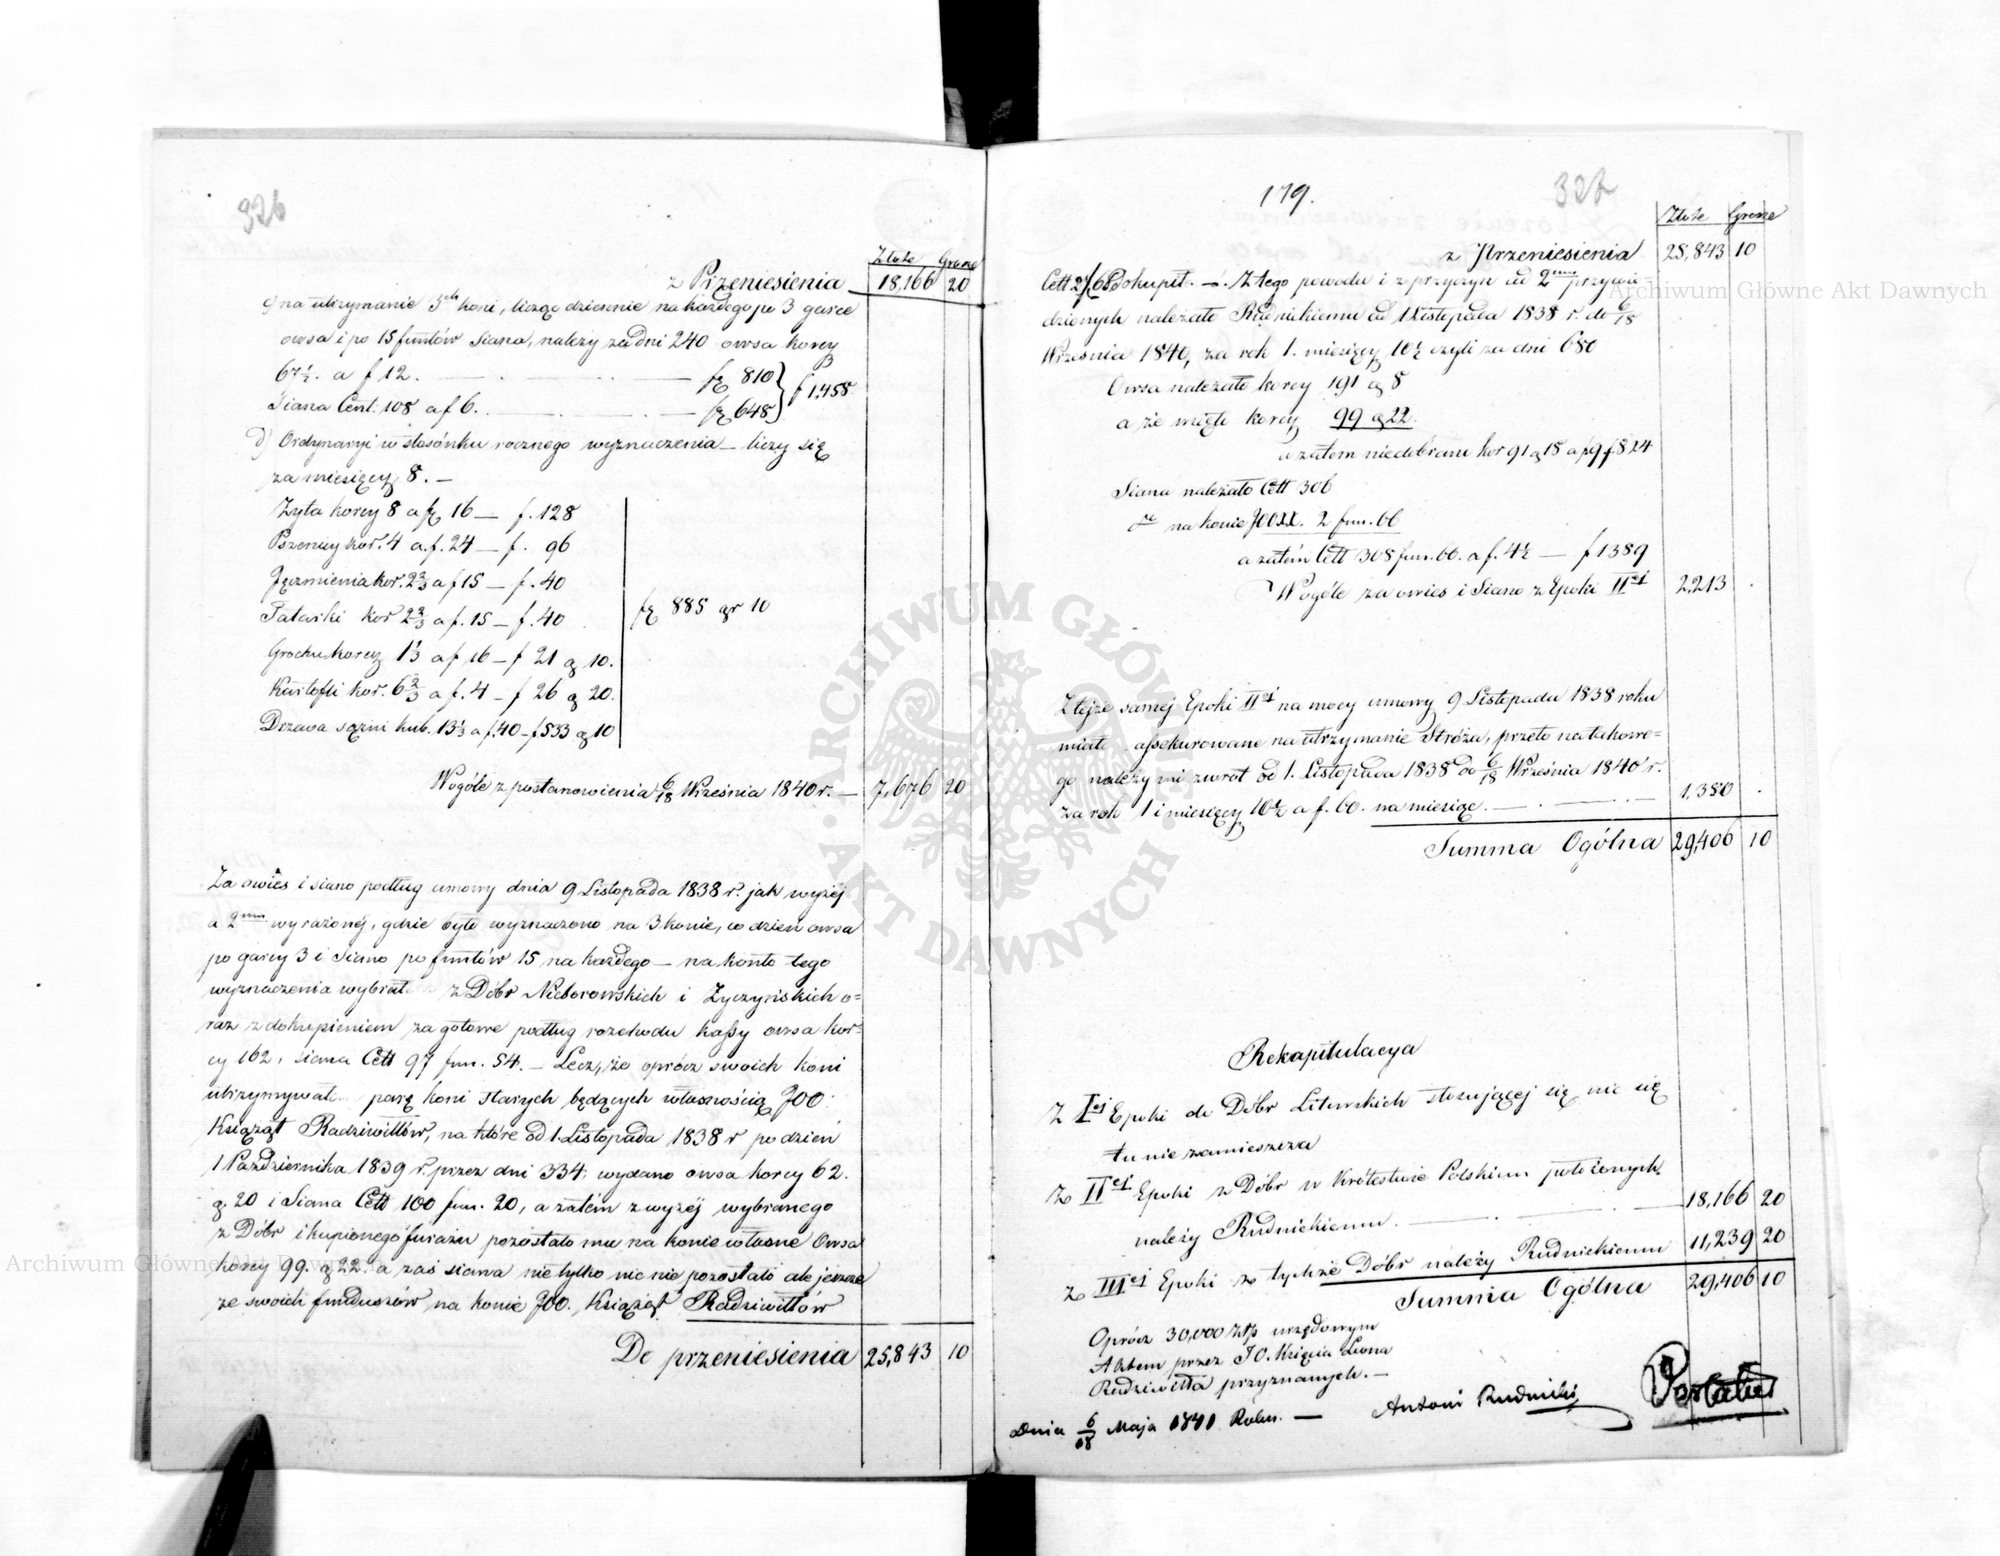 326
Złote Grosze
z Przeniesienia 18,166 20
c) na utrzymanie 3ch koni, licząc dziennie na każdego po 3 garce
owsa i po 15 funtów siana, należy za dni 240 owsa korcy
67½. a f 12. — fł 810
Siana Cent. 108 a f 6. — fł 648 } f 1,458
d) Ordynaryi w stosónku rocznego wyznaczenia — liczy się
za miesięcy 8. —
Żyta korcy 8 a fł 16 — f. 128
Pszenicy kor. 4 a f. 24 — f. 96
Jęczmienia kor. 2⅔ a f 15 — f. 40
Tatarki kor 2⅔ a f. 15 — f. 40
fł 885 gr 10
Grochu korcy 1⅓ a f 16 — f 21 g 10.
Kartofli kor. 6⅔ a f. 4 — f 26 g 20.
Drzewa sążni kub. 13⅓ a f. 40 — f 533 g 10
Wogóle z postanowienia 6/18 Września 1840 r. — 7,676 20
Za owies i siano podług umowy dnia 9 Listopada 1838 r. jak wyżej
a 2um wyrażonéj, gdzie było wyznaczono na 3 konie, co dzień owsa
po garcy 3 i siano po funtów 15 na każdego — na konto tego
wyznaczenia wybrał z Dóbr Nieborowskich i Życzyńskich o=
raz z dokupieniem za gotowe podług rozchodu kassy owsa kor=
cy 162, siana Cett 97 fun. 54. — Lecz, że oprócz swoich koni
utrzymywał parę koni starych będących własnością JOO.
Książąt Radziwiłłów, na które od 1. Listopada 1838 r po dzień
1 Października 1839 r. przez dni 334, wydano owsa korcy 62.
g. 20 i Siana Cett 100 fun. 20, a zatém z wyżéj wybranego
z Dóbr i kupionego furażu pozostało mu na konie własne Owsa
korcy 99. g 22. a zaś siana nie tylko nic nie pozostało ale jeszcze
ze swoich funduszów na konie JOO. Książąt Radziwiłłów
Do przeniesienia 25,843 10
179.
Złote Grosze
z Przeniesienia 25,843 10
Cett 2 f. 66 Dokupił. — Z tego powodu i z przyczyn ad 2um przywie=
dzionych należało Rudnickiemu od 1 Listopada 1838 r. do 6/18
Września 1840, za rok 1. miesięcy 10½ czyli za dni 680
Owsa należało korcy 191 g 8
a że wzięto korcy 99 g 22.
a zatem niedobrano kor 91 g 18 a f 9 f. 824
Siana należało Cett 306
na konie JOOXX. 2 fun. 66
a zatém Cett 308 fun. 66. a f. 4½ — f 1389
Wogóle za owies i Siano z Epoki IIej 2,213 .
Z tejże saméj Epoki IIej na mocy umowy 9 Listopada 1838 roku
miał assekurowane na utrzymanie Stróża, przeto na takowe=
go należy mi zwrot od 1. Listopada 1838 do 6/18 Września 1840 r.
za rok 1 i miesięcy 10½ a f. 60. na miesiąc. — 1,350 .
Summa Ogólna 29,406 10
Rekapitulacya
Z Iej Epoki do Dóbr Litewskich stosującéj się nic się
tu nie zamieszcza
Z IIej Epoki z Dóbr w Królestwie Polskiem położonych
należy Rudnickiemu. — 18,166 20
Z IIIej Epoki z tychże Dóbr należy Rudnickiemu 11,239 20
Summa Ogólna 29,406 10
Oprócz 30,000 Złp urzędowym
Aktem przez JO. Księcia Leona
Radziwiłła przyznanych. —
Dnia 6/18 Maja 1841 Roku. — Antoni Rudnicki
Archiwum Główne Akt Dawnych
Archiwum Główne Akt Dawnych
ARCHIWUM GŁÓWNE AKT DAWNYCH